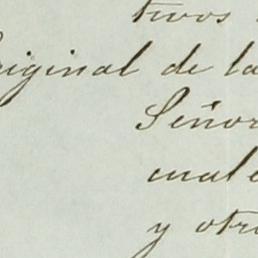 tivos
original de la
Señor
cuale
y otro